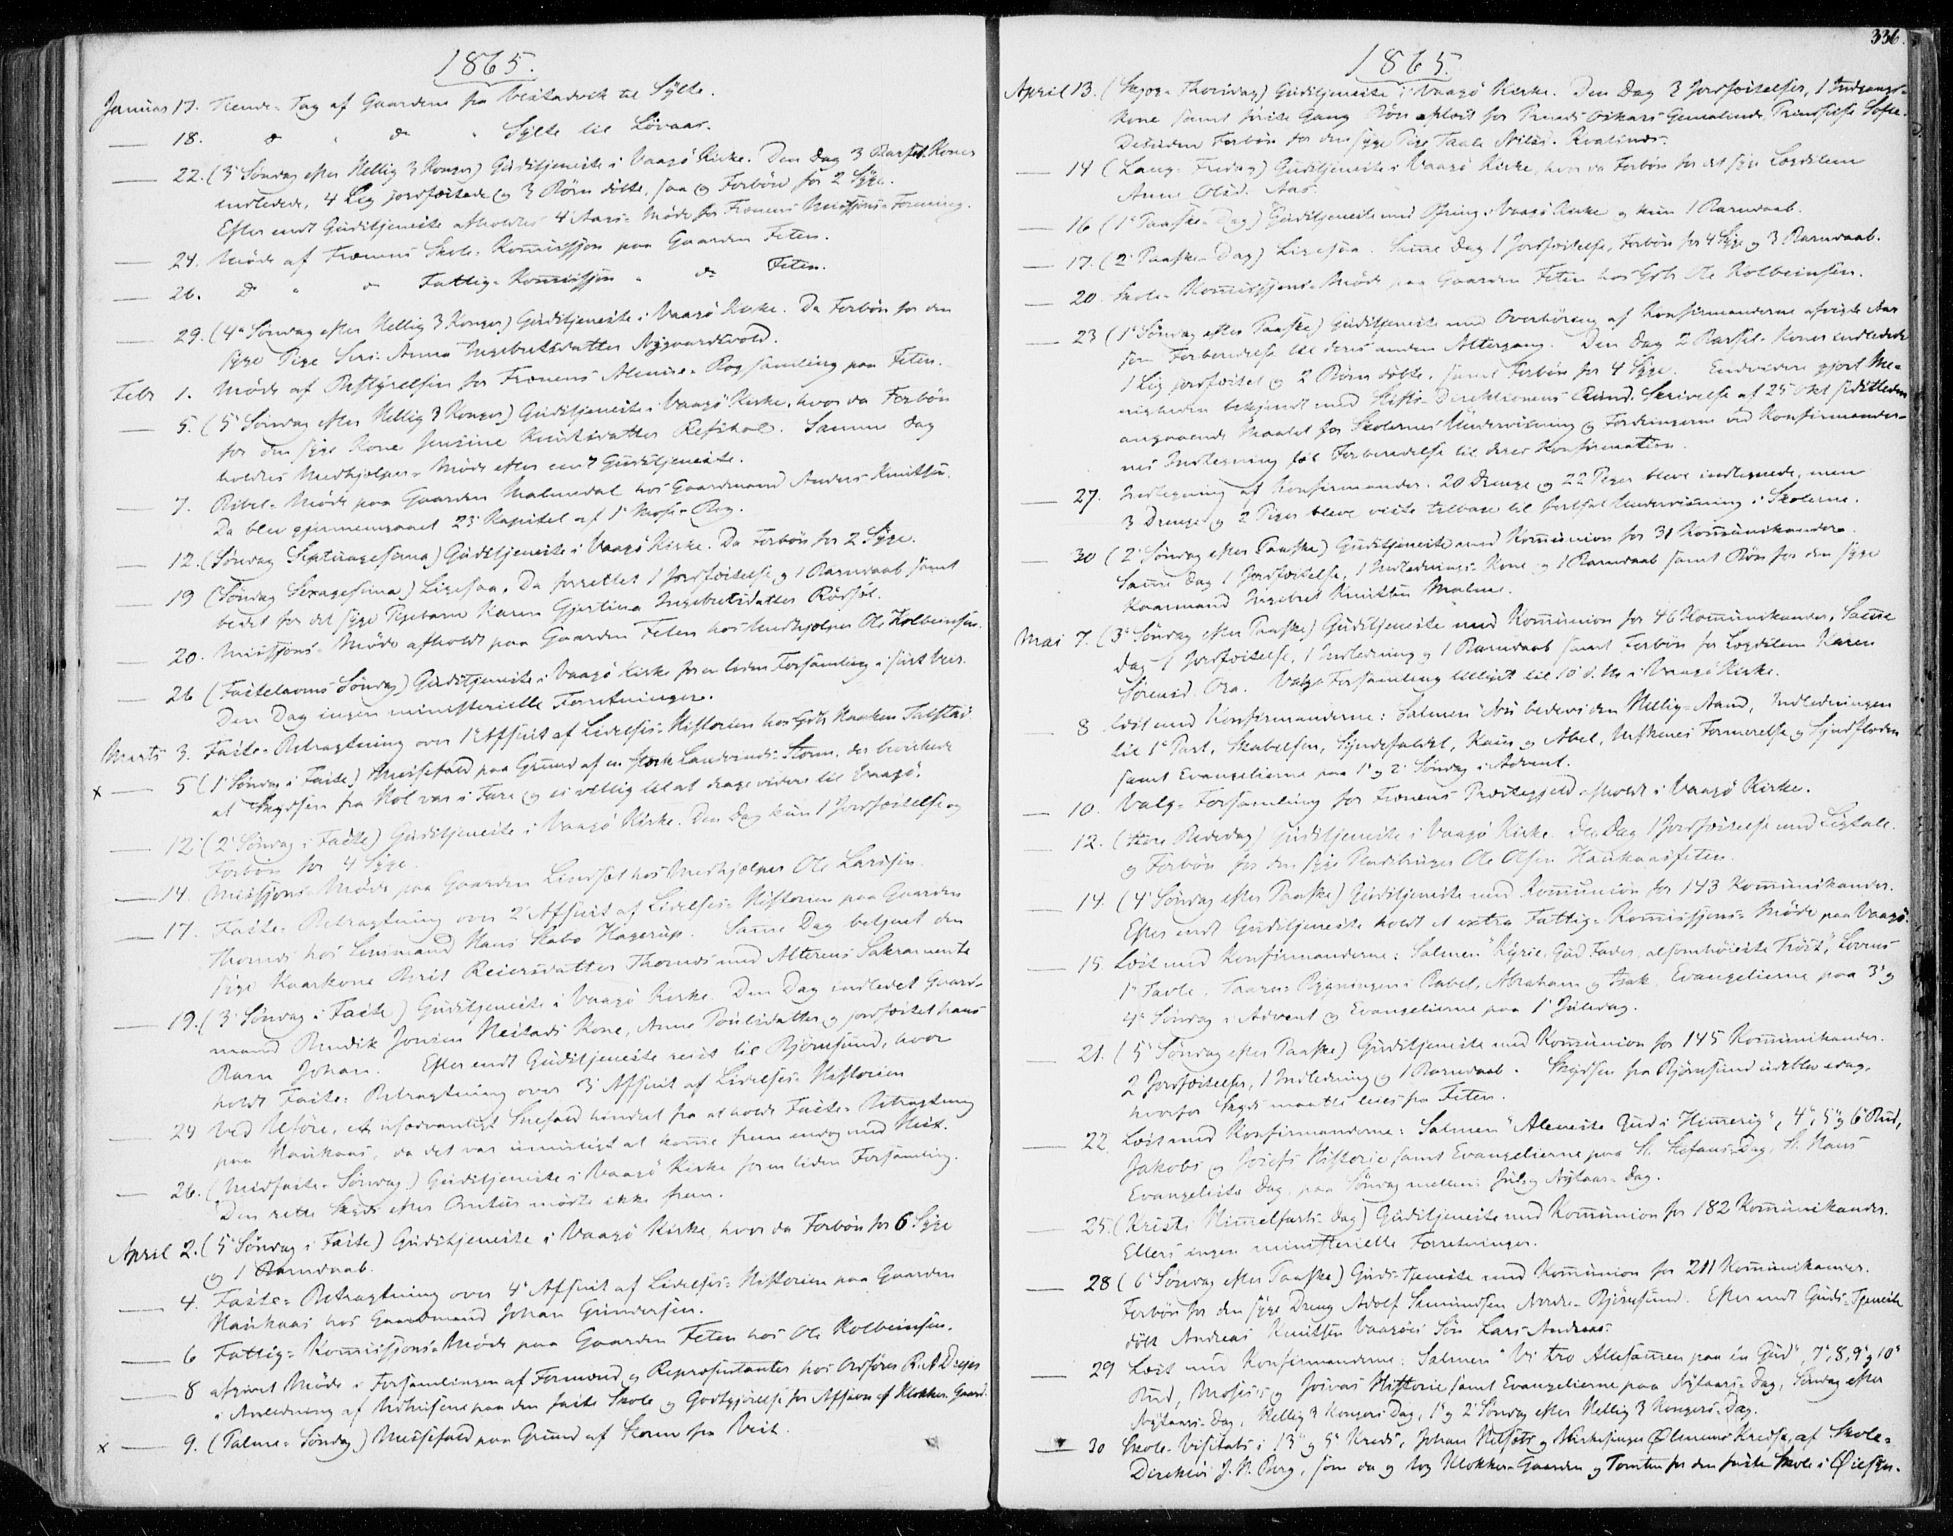 1865.
Januar 17. Tiende-Tag af Gaardene fra Vestadvik til Sylte.
— 18. do " do " Sylte til Lövaas.
— 22. (3die Søndag efter Hellig 3 Konger) Gudstjeneste i Vaagö Kirke. Den Dag 3 Barsel-Koner
indledede, 4 Lig jordfæstede og 3 Börn döbte, saa og Forbön for 2 Syge.
Efter endt Gudstjeneste afholdtes 4de Aars-Möde for Frænens Missions-Forening.
— 24. Möde af Frænens Skole-Kommission paa Gaarden Feten.
— 26. do " do Fattig-Kommission " do Feten.
— 29. (4de Søndag efter Hellig 3 Konger) Gudstjeneste i Vaagö Kirke. Da Forbön for den
syge Pige Seri-Anna Ingebretsdatter Nygaardsvold.
Febr 1. Möde af Bestyrelsen for Frænens Almue-Bogsamling paa Feten.
— 5. (5te Söndag efter Hellig 3 Konger) Gudstjeneste i Vaagö Kirke, hvor da Forbön
for den syge Kone Knutsdatter. Samme Dag
holdtes Medhjelper-Möde efter endt Gudstjeneste.
— 7. Bibel-Möde paa Gaarden Malmedal hos Gaardmand Anders Knutsen.
Da blev gjennemgaaet 23de Kapitel af 1ste Mose-Bog.
— 12. (Söndag Septuagesima) Gudstjeneste i Vaagö Kirke. Da Forbön for 2 Syge.
19 (Söndag Sexagesima) Ligesaa. Da forrettet 1 Jordfæstelse og 1 Barnedaab samt
bedet for det syge Pigebarn Karen Gjertina Ingebretsdatter.
— 20. Missions-Möde afholdt paa Gaarden Feten hos Medhjelper Ole Kolbeinsen.
— 26 (Fastelavns Söndag) Gudstjeneste i Vaagö Kirke for en liden Forsamling i sært Veir.
Den Dag ingen ministerielle Forretninger.
Marts 3. Faste-Betragtning over 1ste Afsnit af Lidelses-Historien hos Haaken Talstad
x — 5 (1ste Søndag i Faste) Messefald paa Grund af en stærk Landvinds-Storm, der bevirkede
at Skydsen fra Hol var i Fare og ei villig til at drage videre til Vaagö.
— 12. (2den Søndag i Faste) Gudstjeneste i Vaagö Kirke. Den Dag kun 1 Jordfæstelse og
Forbön for 4 Syge.
— 14. Missions-Möde paa Gaarden Lindset hos Medhjelper Ole Larssen.
— 17. Faste-Betragtning over 2det Afsnit af Lidelses-Historien paa Gaarden
Thornes hos Lensmand Hans Stabo Hagerup. Samme Dag betjent den
syge Kaarkone Berit Reiersdatter Thornes med Alterens Sakramente
— 19. (3die Søndag i Faste) Gudstjeneste i Vaagö Kirke. Den Dag indledet Gaard-
mand Bendik Jonsen Nestads Kone, Anne Poulsdatter og jordfæstet hans
Barn Johan. Efter endt Gudstjeneste reist til Björnsund, hvor
holdt Faste-Betragtning over 3die Afsnit af Lidelses-Historien
— 24 Ved Uføre, et usædvanligt Snefald hindret fra at holde Faste-Betragtning
paa Haukaas, da det var umuligt at komme frem endog med Hest.
— 26. (Midfaste-Söndag) Gudstjeneste i Vaagö Kirke for en liden Forsamling.
Den rette Skyds efter mödte ikke frem.
April 2. (5te Söndag i Faste) Gudstjeneste i Vaagö Kirke, hvor da Forbön for 6 Syge
og 1 Barnedaab.
— 4. Faste-Betragtning over 4de Afsnit af Lidelses-Historien paa Gaarden
Haukaas hos Gaardmand Johan Gundersen.
— 6 Fattig-Kommissions-Möde paa Gaarden Feten hos Ole Kolbeinsen.
— 8 afgivet Möde i Forsamlingen af Formænd og Repræsentanter hos Ordfører R. A. Dreyer
i Anledning af Udhusene paa den faste Skole og Godtgjörelse for Afsavn af Klokker-Gaard.
x — 9. (Palme-Söndag) Messefald paa Grund af Storm fra Vest.
336.
1865
April 13. (Skjær-Thorsdag) Gudstjeneste i Vaagö Kirke. Den Dag 3 Jordfæstelser, 1 Indgangs-
kone samt første Gang Bön for Gemalinde, Prindsesse Sofie.
Desuden Forbön for den syge Pige
— 14 (Lang-Fredag) Gudstjeneste i Vaagö Kirke, hvor da Forbön for det syge Lægdslem
Anne Olsd. Aas.
— 16 (1ste Paaske-Dag) Gudstjeneste med Ofring i Vaagö Kirke og kun 1 Barnedaab.
— 17. (2den Paaske-Dag) Ligesaa. Samme Dag 1 Jordfæstelse, Forbön for 4 Syge og 3 Barnedaab.
— 20. Skole-Kommissions-Möde paa Gaarden Feten hos Ole Kolbeinsen.
— 23 (1ste Söndag efter Paaske) Gudstjeneste med Overhöring af Konfirmanderne afvigte Aar
som Forberedelse til deres anden Altergang. Den Dag 2 Barsel-Koner indledede
1 Lig jordfæstet og 2 Börn döbte, samt Forbön for 4 Syge. Endvidere gjort Me-
nigheden bekjendt med Stifts-Direktionens Rund-Skrivelse af 25 Okt sidstleden
angaaende Maalet for Skolernes Undervisning og Fordringerne ved Konfirmander-
nes Indtegning til Forberedelse til deres Konfirmation.
— 27. Indtegning af Konfirmander. 20 Drenge og 22 Piger bleve indtegnede, men
3 Drenge og 2 Piger bleve viste tilbage til fortsat Undervisning i Skolerne.
— 30 (2den Söndag efter Paaske) Gudstjeneste med Kommunion for 31 Kommunikanter.
Samme Dag 1 Jordfæstelse, 1 Indlednings-Kone og 1 Barnedaab samt Bön for den syge
Kaarmand Ingebret Knutsen Malme.
Mai 7. (3die Söndag efter Paaske) Gudstjeneste med Kommunion for 46 Kommunikanter. Samme
Dag 1 Jordfæstelse, 1 Indledning og 1 Barnedaab samt Forbön for Lægdslem Karen
Sörensd. Ora. Valg-Forsamling tillyst til 10 d. M. i Vaagö Kirke.
— 8 læst med Konfirmanderne: Salmen "Nu bede vi den Hellig-Aand", Indledningen
til 1ste Part, Skabelsen, Syndefaldet, Kain og Abel, Menneskenes Formerelse og Syndfloden
samt Evangelierne paa 1ste og 2den Søndag i Advent.
— 10. Valg-Forsamling for Frænens Præstegjeld afholdt i Vaagö Kirke.
— 12. (store Bededag) Gudstjeneste i Vaagö Kirke. Den Dag 1 Jordfæstelse med Ligtale.
og Forbön for den syge Ole Olsen Haukaasfeten.
— 14. (4de Söndag efter Paaske) Gudstjeneste med Kommunion for 143 Kommunikanter.
Efter endt Gudstjeneste holdt et extra Fattig-Kommissions-Möde paa Vaagö.
— 15 Læst med Konfirmanderne: Salmen "Kyrie, Gud Fader, alsomhöieste Tröst", Lovens
1ste Tavle, Taarn-Bygningen i Babel, Abraham og Isak, Evangelierne paa 3die og
4de Söndag i Advent og Evangelierne paa 1ste Juledag.
— 21. (5te Söndag efter Paaske) Gudstjeneste med Kommunion for 145 Kommunikanter.
2 Jordfæstelser, 1 Indledning og 1 Barnedaab. Skydsen fra Björnsund udeblev idag,
hvorfor Skyds maatte leies fra Feten.
— 22. Læst med Konfirmanderne: Salmen "Aleneste Gud i Himmerig", 4de, 5te og 6te Bud,
Jakobs og Josefs Historie, samt Evangelierne paa St. Stefans-Dag, St. Hans
Evangelists Dag, paa Söndag mellem Jul og Nytaars-Dag.
— 25. (Kristi Himmelfarts-Dag) Gudstjeneste med Kommunion for 182 Kommunikanter.
Ellers ingen ministerielle Forretninger.
— 28 (6te Söndag efter Paaske) Guds-Tjeneste med Kommunion for 211 Kommunikanter.
Forbön for den syge Dreng Adolf Nordre-Björnsund. Efter endt Guds-Tjeneste
döbt Andreas Knutsen Vaagöes Sön Lars Andreas.
— 29 Læst med Konfirmanderne: Salmen "Vi tro Allesammen paa én Gud", 7de, 8, 9de og 10de
Bud, Moses's og Josvas Historie samt Evangelierne paa Nytaars-Dag, Söndag efter
Nytaars-Dag, Hellig 3 Kongers Dag, 1ste og 2den Söndag efter Hellig 3 Kongers-Dag.
— 30 Skole-Visitats i 13de og 5te Kreds, Johan og Kredse, af Skole-
Direktör J. N. Berg, som da og tog Klokker-Gaarden og Tomten for den faste Skole i